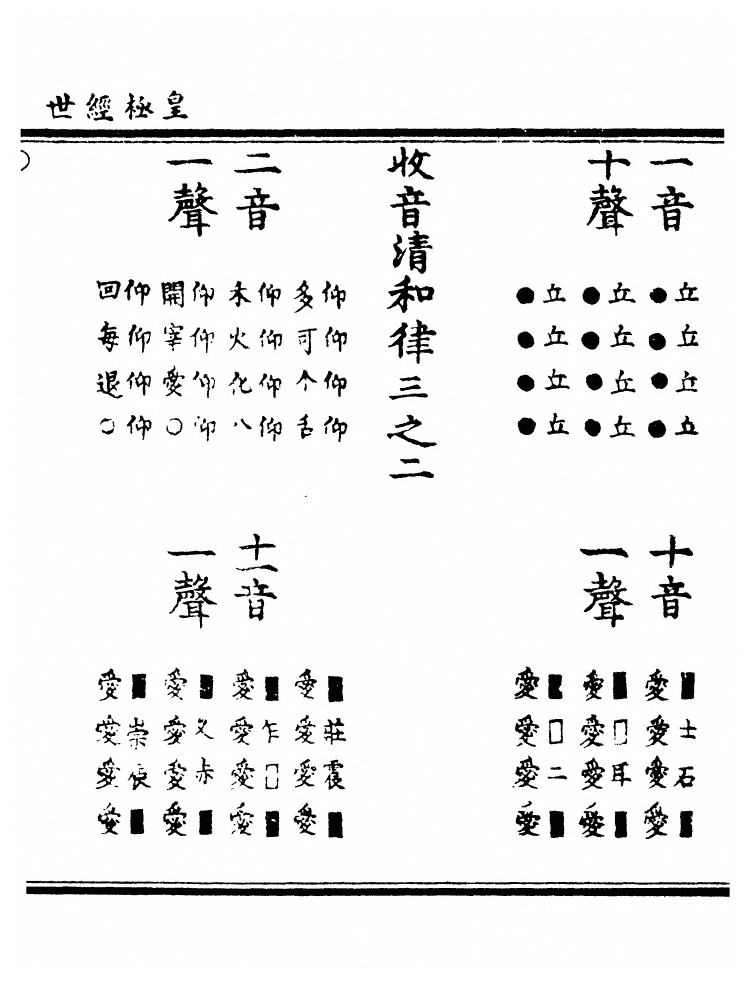 皇極經世
一音
十聲
丘丘丘丘
●●●●
丘丘丘丘
●●●●
丘丘丘丘
●●●●
收音清和律三之二
二音
一聲
仰仰仰仰
多可个舌
仰仰仰仰
禾火化八
仰仰仰仰
開宰愛○
仰仰仰仰
回每退○
十音
一聲
■士石■
愛愛愛愛
■□耳■
愛愛愛愛
■□二■
愛愛愛愛
十一音
一聲
■莊震■
愛愛愛愛
■乍□■
愛愛愛愛
■叉赤■
愛愛愛愛
■崇辰■
愛愛愛愛